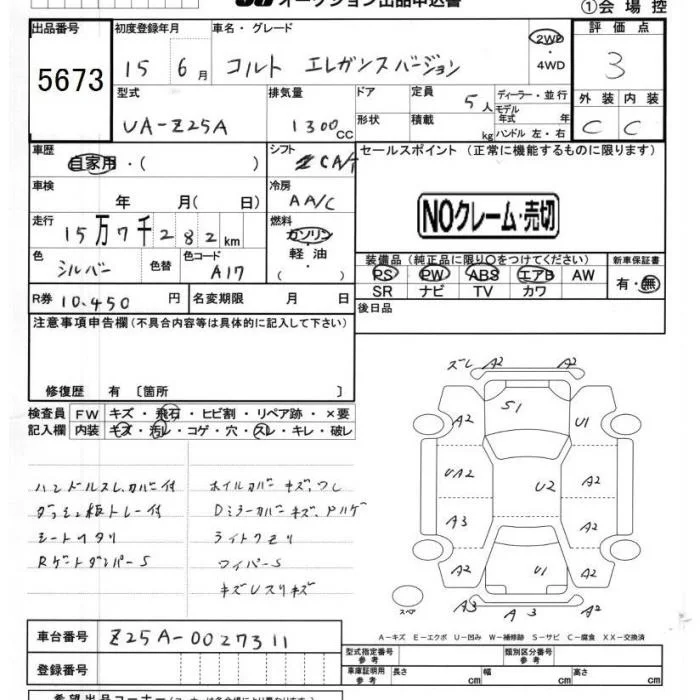 オークション出品申込書
①会場控
出品番号 初度登録年月 車名・グレード 2WD ・ 4WD 評価点
5673 15 6月 コルト エレガンスバージョン 3
型式 排気量 ドア 定員 5人 ディーラー・並行 外装 内装
UA-Z25A 1300CC 形状 積載 kg モデル年式 年 ハンドル 左・右 C C
車歴 自家用・( ) シフト CA/T セールスポイント (正常に機能するものに限ります)
車検 年 月( 日) 冷房 AA/C
NOクレーム・売切
走行 15万7千282km 燃料 ガソリン 軽油 ・( )
色 シルバー 色替 色コード A17
装備品 (純正品に限り○をつけてください) 新車保証書
PS PW ABS エアB AW 有・無
SR ナビ TV カワ
R券 10,450円 名変期限 月 日 後日品
注意事項申告欄(不具合内容等は具体的に記入して下さい)
修復歴 有 〔箇所 〕
検査員 FW キズ・飛石・ヒビ割・リペア跡・×要
記入欄 内装 キズ・汚レ・コゲ・穴・スレ・キレ・破レ
ハンドルスレ、カバー付 ホイルカバーキズ、ワレ
ダッシュ板トレー付 Dミラーカバーキズ、Pハゲ
シートヘタリ ライトクモリ
RゲートダンパーS ワイパーS
キズUスリキズ
ズレ A2 A2
A2 S1 U1
UA2 U2 A2
A3 A2
A2 U1 A2
スペア A3 A3 A2
A-キズ E-エクボ U-凹み W-補修跡 S-サビ C-腐食 XX-交換済
車台番号 Z25A-0027311
登録番号
型式指定番号 参考 類別区分番号 参考
車庫証明用 参考 長さ cm 幅 cm 高さ cm
希望出品コーナー